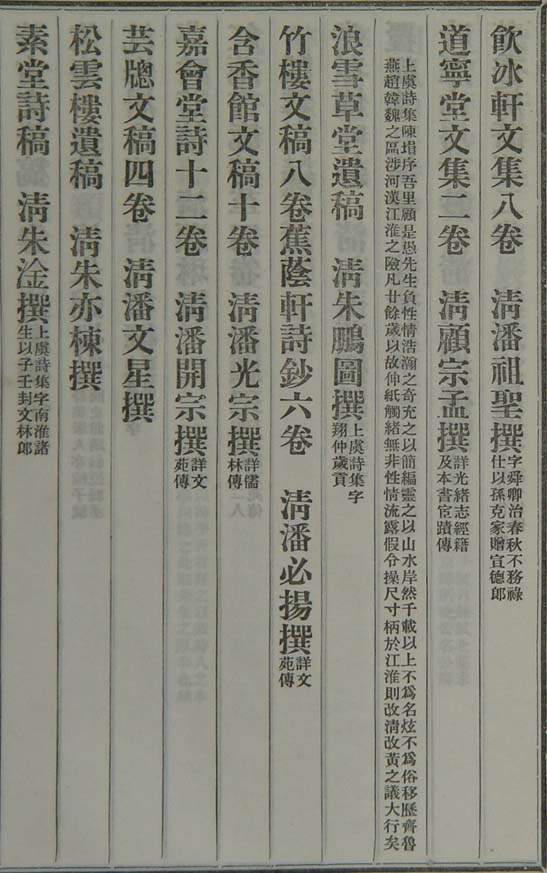 飲冰軒文集八卷　清潘祖聖撰字舜卿治春秋不務祿仕以孫克家贈宣德郎
道寧堂文集二卷　清顧宗孟撰詳光緒志經籍及本書宦蹟傳
上虞詩集陳堦序吾里顧是愚先生負性情浩瀚之奇充之以簡編靈之以山水岸然千載以上不為名炫不為俗移歷齊魯
燕趙韓魏之區涉河漢江淮之險凡廿餘歲以故伸紙觸緒無非性情流露假令操尺寸柄於江淮則改淸改黃之議大行矣
浪雪草堂遺稿　清朱鵬圖撰上虞詩集字翔仲歲貢
竹樓文稿八卷蕉蔭軒詩鈔六卷　清潘必揚撰詳文苑傳
含香館文稿十卷　清潘光宗撰詳儒林傳
嘉會堂詩十二卷　清潘開宗撰詳文苑傳
芸牕文稿四卷　清潘文星撰
松雲樓遺稿　清朱亦棟撰
素堂詩稿　清朱淦撰上虞詩集字南淮諸生以子壬封文林郎